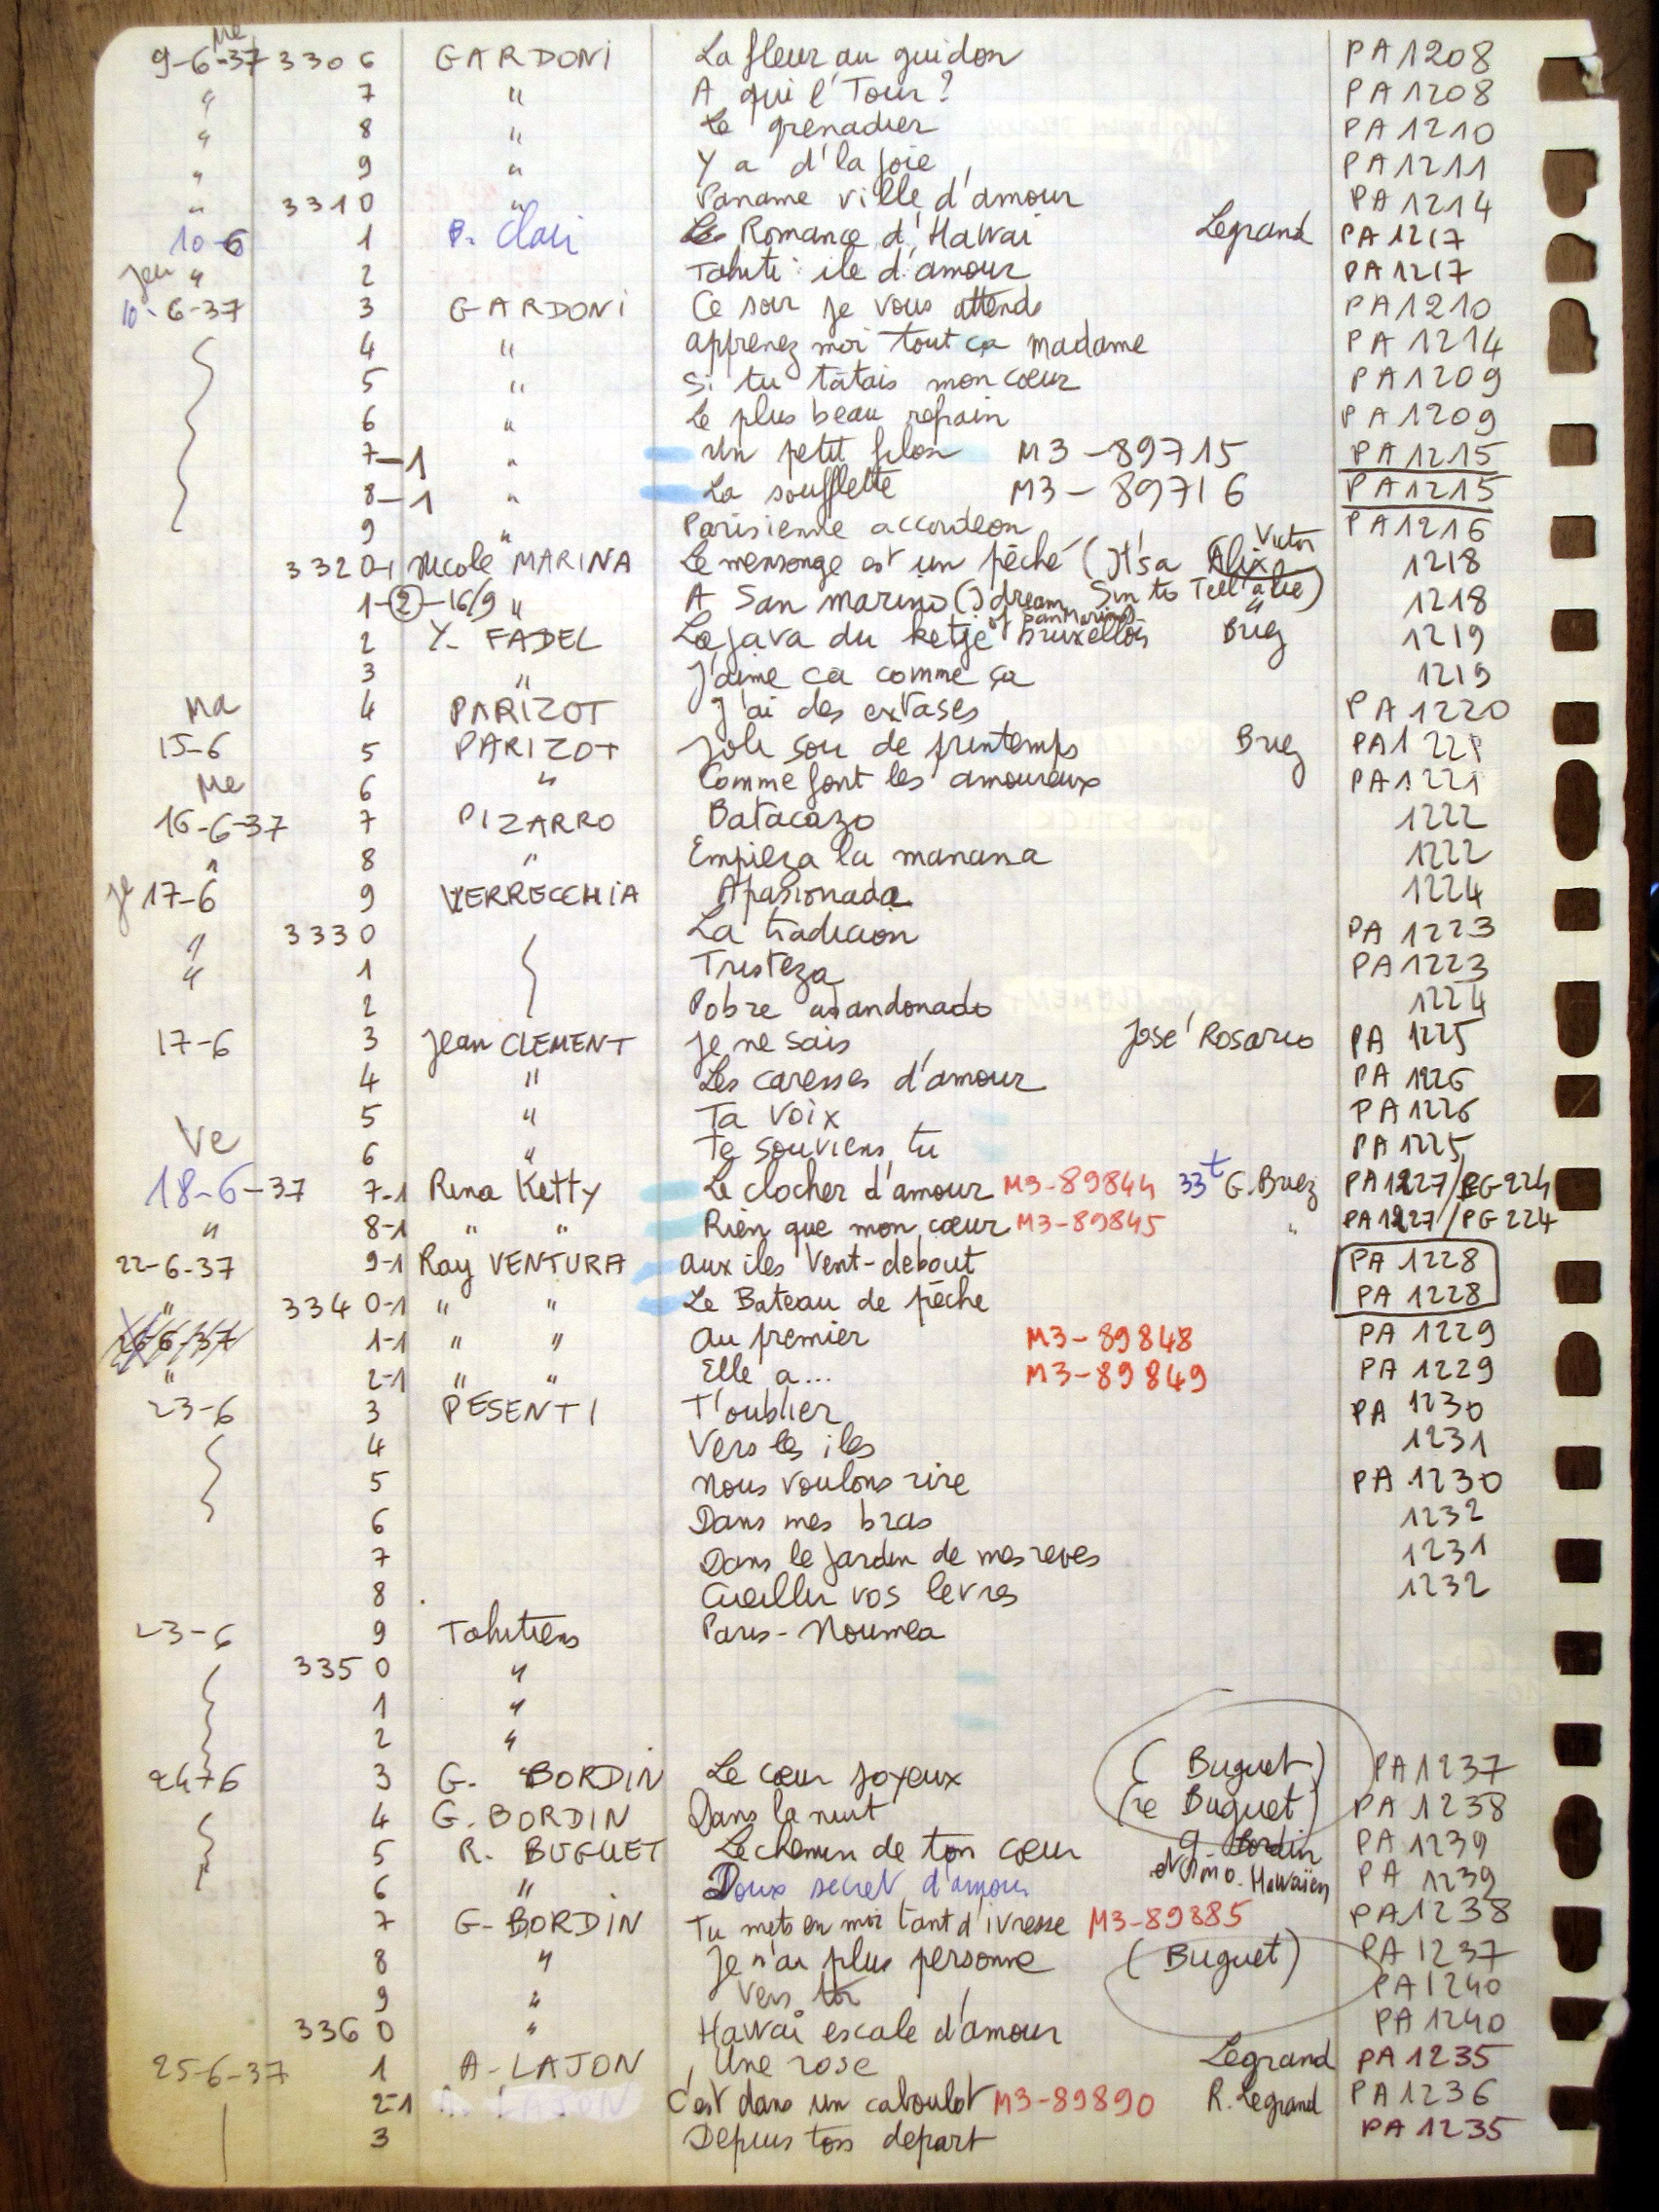 Me
9-6-37 3306 GARDONI La fleur au guidon PA 1208
" 7 " A qui l'Tour? PA 1208
" 8 " Le grenadier PA 1210
" 9 " Y a d'la joie PA 1211
" 3310 " Paname ville d'amour PA 1214
10-6 1 Romance d'Hawai Legrand PA 1217
Jeu " 2 Tahiti ile d'amour PA 1217
10-6-37 3 GARDONI Ce soir je vous attends PA 1210
4 " apprenez moi tout ça madame PA 1214
5 " Si tu tâtais mon cœur PA 1209
6 " Le plus beau refrain PA 1209
7-1 " Un petit filou M3-89715 PA 1215
8-1 " La soufflette M3-89716 PA 1215
9 " Parisienne accordéon PA 1216
3320-1 Nicole MARINA Le mensonge est un péché (It's a Alix Victor 1218
1-(2)-16/9 " A San marino (I dream of San Marino) Sin to Tell a lie) " 1218
2 Y. FADEL La java du ketje bruxellois Brez 1219
3 " J'aime ca comme ça 1219
Ma 4 PARIZOT J'ai des extases PA 1220
15-6 5 PARIZOT Joli soir de printemps Brez PA 1221
Me 6 " Comme font les amoureux PA 1221
16-6-37 7 PIZARRO Batacazo 1222
" 8 " Empieza la manana 1222
Je 17-6 9 VERRECCHIA Apasionada 1224
" 3330 La tradicion PA 1223
" 1 Tristeza PA 1223
2 Pobre abandonado 1224
17-6 3 Jean CLEMENT Je ne sais José Rosario PA 1225
4 " Les caresses d'amour PA 1226
5 " Ta voix PA 1226
Ve 6 " Te souviens tu PA 1225
18-6-37 7-1 Rina Ketty Le clocher d'amour M3-89844 33t G. Briez PA 1227/PG 224
" 8-1 " " Rien que mon cœur M3-89845 " PA 1227/PG 224
22-6-37 9-1 Ray VENTURA aux iles Vent-debout PA 1228
" 3340-1 " " Le Bateau de pêche PA 1228
1-1 " " au premier M3-89848 PA 1229
" 2-1 " " Elle a... M3-89849 PA 1229
23-6 3 PESENTI T'oublier PA 1230
4 Vers les iles 1231
5 Nous voulons rire PA 1230
6 Dans mes bras 1232
7 Dans le jardin de mes reves 1231
8 Cueillir vos levres 1232
23-6 9 Tahitiens Paris-Noumea
3350 "
1 "
2 "
24-6 3 G. BORDIN Le cœur joyeux (Buguet) PA 1237
4 G. BORDIN Dans la nuit (re Buguet) PA 1238
5 R. BUGUET Le chemin de ton cœur g. Bordin PA 1239
6 " Doux secret d'amour Hawaïen PA 1239
7 G-BORDIN Tu mets en moi tant d'ivresse M3-89885 PA 1238
8 " Je n'ai plus personne (Buguet) PA 1237
9 " Vers toi PA 1240
3360 " Hawai escale d'amour PA 1240
25-6-37 1 A-LAJON Une rose Legrand PA 1235
2-1 A. LAJON C'est dans un caboulot M3-89890 R. Legrand PA 1236
3 Depuis ton depart PA 1235